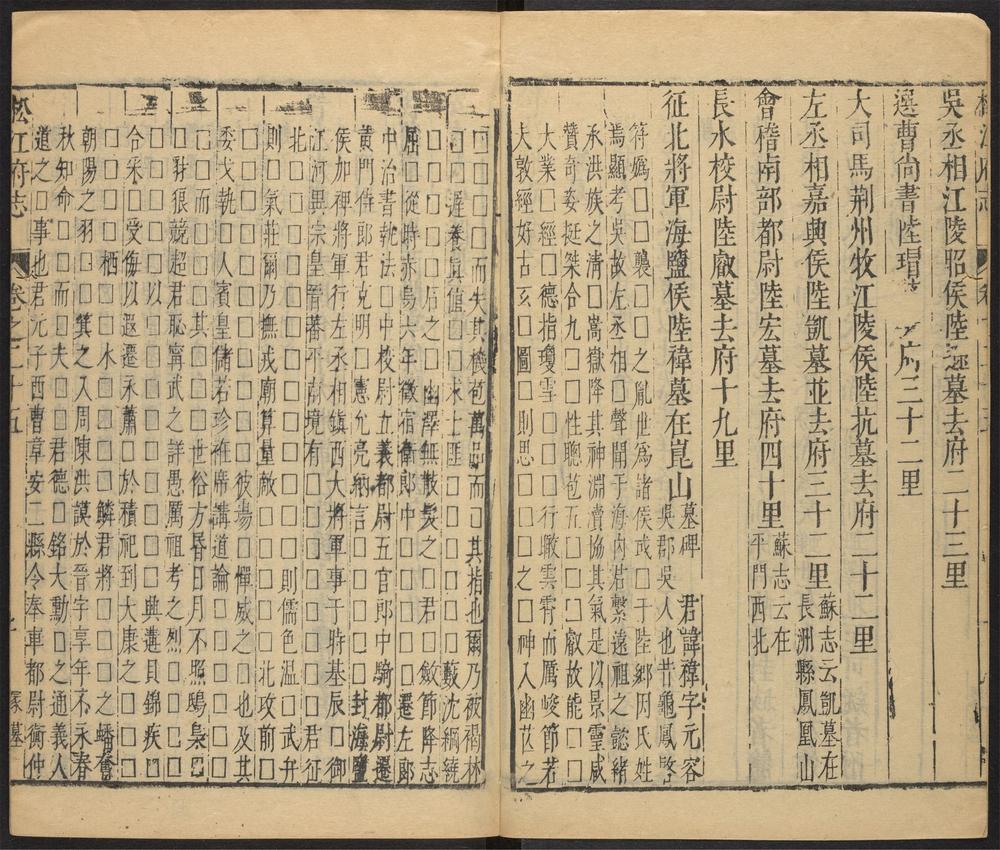 吳丞相江陵昭侯陸遜墓去府二十三里
選曹尚書陸瑁 府三十二里
大司馬荆州牧江陵侯陸抗墓去府二十二里
左丞相嘉興侯陸凱墓並去府三十二里蘇志云凱墓在
長洲縣鳳凰山
會稽南部都尉陸宏墓去府四十里蘇志云在
平門西北
長水校尉陸㕡墓去府十九里
征北將軍海鹽侯陸禕墓在崑山墓碑 君諱禕字元容
吳郡吳人也昔龜鳳啓
符嬀□□襲□□之亂世爲諸侯或□于陸鄉因氏姓
焉顯考吳故左丞相□聲聞于海内若繫遠祖之懿緒
承洪族之淸□嵩嶽降其神淵瀆協其氣是以景靈咸
贊奇姿挺桀合九□□性聰苞五□□叡故能□□
大業□經□德指瓊雪□□□行曒雲霄而厲峻節若
夫敦經好古玄□圖□則思□□□之□神入幽苡之
□□□□□而失其機苞萬品而□其指也爾乃被褐林
□□遲養眞值□□求士匪□□□□□藪沈綱繞
□□□后之□幽澤無散髮之□君□斂節降志
屈□從時赤烏六年徵宿衛郎中□□□□遷左郎
中治書執法□中校尉立義都尉五官郎中騎都尉遷
黃門侍郎君克明□憲允亮納言□□□□封海鹽
侯加裨將軍行左丞相鎮西大將軍事于時基辰□御
江河異宗皇晉蕃平南境有□□□□□□□君征
北□□□□□□□□□□則儒色温□□武弁
則□氣莊爾乃撫戎廟算量敵□□□□□北攻前□
委戈執□人賓皇儲若珍袵席講道論□□□也及其
□□而□□□□□□□彼場□憚威之□□□□
□豺狼競超君恥甯武之詳愚厲祖考之烈□□□□
□□□□其□□□□世俗方昏日月不照鴟梟□□
合采□受侮以遐遷永蕭□於積祀到大康之□□□
□□□□栖□□木□□□□鱗君將□□□之蟠奮
朝陽之羽□□箕之入周陳洪謨於晉宇享年不永春
秋知命□□而□夫□□君德□銘大勳□之通義人
道之□事也君元子西曹章安二縣令奉車都尉衡仲
松江府志 卷之二十五 冢墓